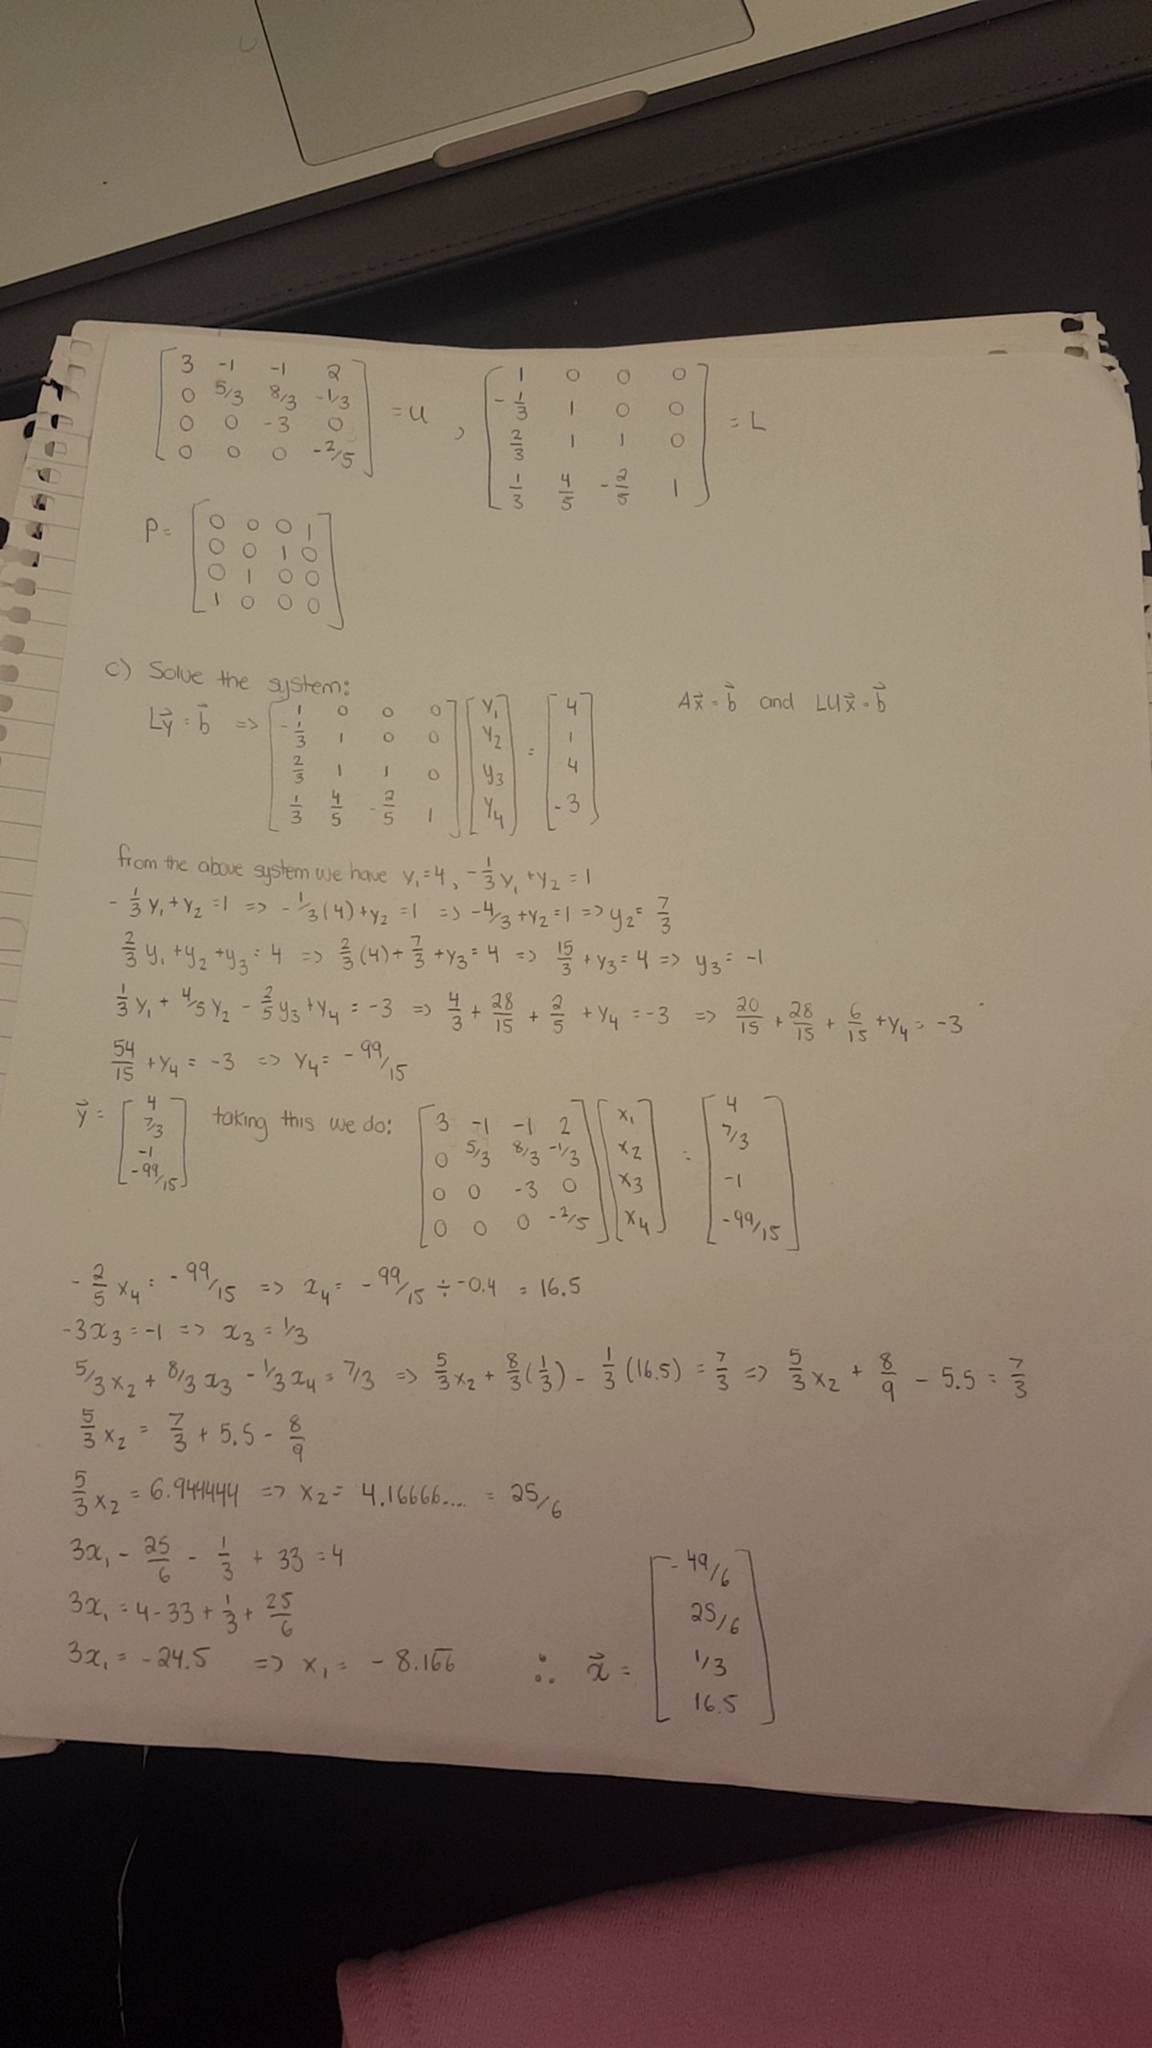 [ 3 -1 -1 2 ]
[ 0 5/3 8/3 -1/3 ] = U , [ 1 0 0 0 ]
[ 0 0 -3 0 ] [ -1/3 1 0 0 ] = L
[ 0 0 0 -2/5 ] [ 2/3 1 1 0 ]
[ 1/3 4/5 -2/5 1 ]
P = [ 0 0 0 1 ]
[ 0 0 1 0 ]
[ 0 1 0 0 ]
[ 1 0 0 0 ]
c) Solve the system:
Ly⃗ = b⃗ => [ 1 0 0 0 ] [ y₁ ] = [ 4 ] Ax⃗ = b⃗ and LUx⃗ = b⃗
[ -1/3 1 0 0 ] [ y₂ ] [ 1 ]
[ 2/3 1 1 0 ] [ y₃ ] [ 4 ]
[ 1/3 4/5 -2/5 1 ] [ y₄ ] [ -3 ]
from the above system we have y₁ = 4, -1/3 y₁ + y₂ = 1
-1/3 y₁ + y₂ = 1 => -1/3(4) + y₂ = 1 => -4/3 + y₂ = 1 => y₂ = 7/3
2/3 y₁ + y₂ + y₃ = 4 => 2/3(4) + 7/3 + y₃ = 4 => 15/3 + y₃ = 4 => y₃ = -1
1/3 y₁ + 4/5 y₂ - 2/5 y₃ + y₄ = -3 => 4/3 + 28/15 + 2/5 + y₄ = -3 => 20/15 + 28/15 + 6/15 + y₄ = -3
54/15 + y₄ = -3 => y₄ = -99/15
y⃗ = [ 4 ] taking this we do: [ 3 -1 -1 2 ] [ x₁ ] = [ 4 ]
[ 7/3 ] [ 0 5/3 8/3 -1/3 ] [ x₂ ] [ 7/3 ]
[ -1 ] [ 0 0 -3 0 ] [ x₃ ] [ -1 ]
[ -99/15 ] [ 0 0 0 -2/5 ] [ x₄ ] [ -99/15 ]
-2/5 x₄ = -99/15 => x₄ = -99/15 ÷ -0.4 = 16.5
-3x₃ = -1 => x₃ = 1/3
5/3 x₂ + 8/3 x₃ - 1/3 x₄ = 7/3 => 5/3 x₂ + 8/3(1/3) - 1/3(16.5) = 7/3 => 5/3 x₂ + 8/9 - 5.5 = 7/3
5/3 x₂ = 7/3 + 5.5 - 8/9
5/3 x₂ = 6.944444 => x₂ = 4.16666.... = 25/6
3x₁ - 25/6 - 1/3 + 33 = 4
3x₁ = 4 - 33 + 1/3 + 25/6
3x₁ = -24.5 => x₁ = -8.166 ∴ x⃗ = [ -49/6 ]
[ 25/6 ]
[ 1/3 ]
[ 16.5 ]